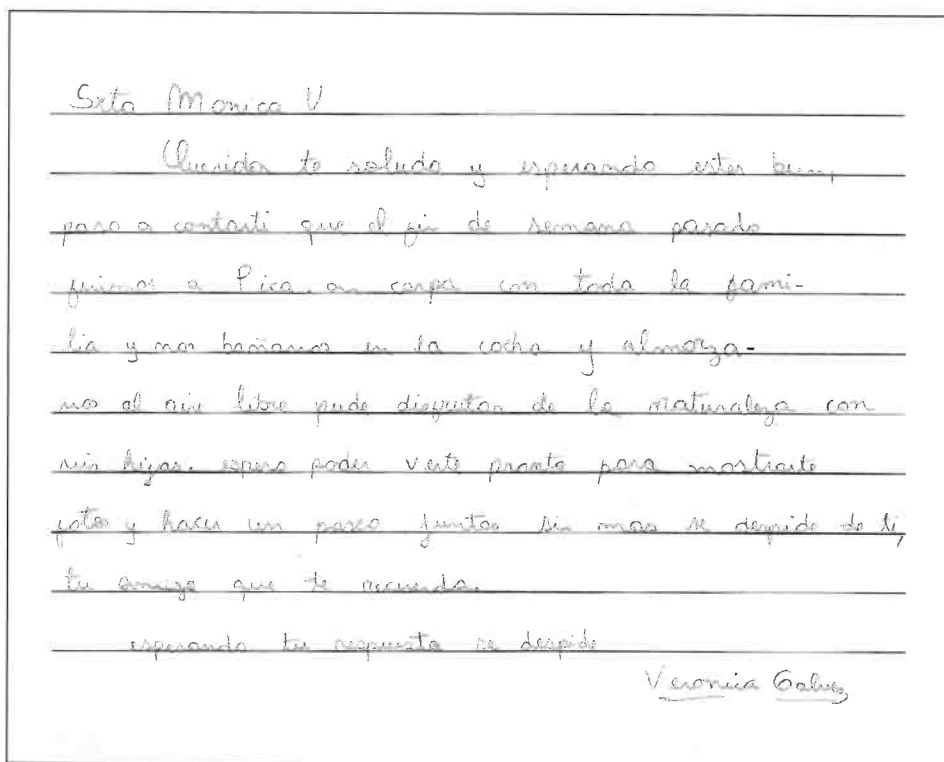 Srta Monica V
Querida te saludo y esperando estes bien,
paso a contarti que el fin de semana pasado
fuimos a Pica. en carpa con toda la fami-
lia y nos bañamos en la cocha y almorza-
mos al aire libre pude disfrutar de la naturaleza con
mis hijas. espero poder verte pronto para mostrarte
fotos y hacer un paseo juntas sin mas se despide de ti,
tu amiga que te recuerda.
esperando tu respuesta se despide
Veronica Galvez